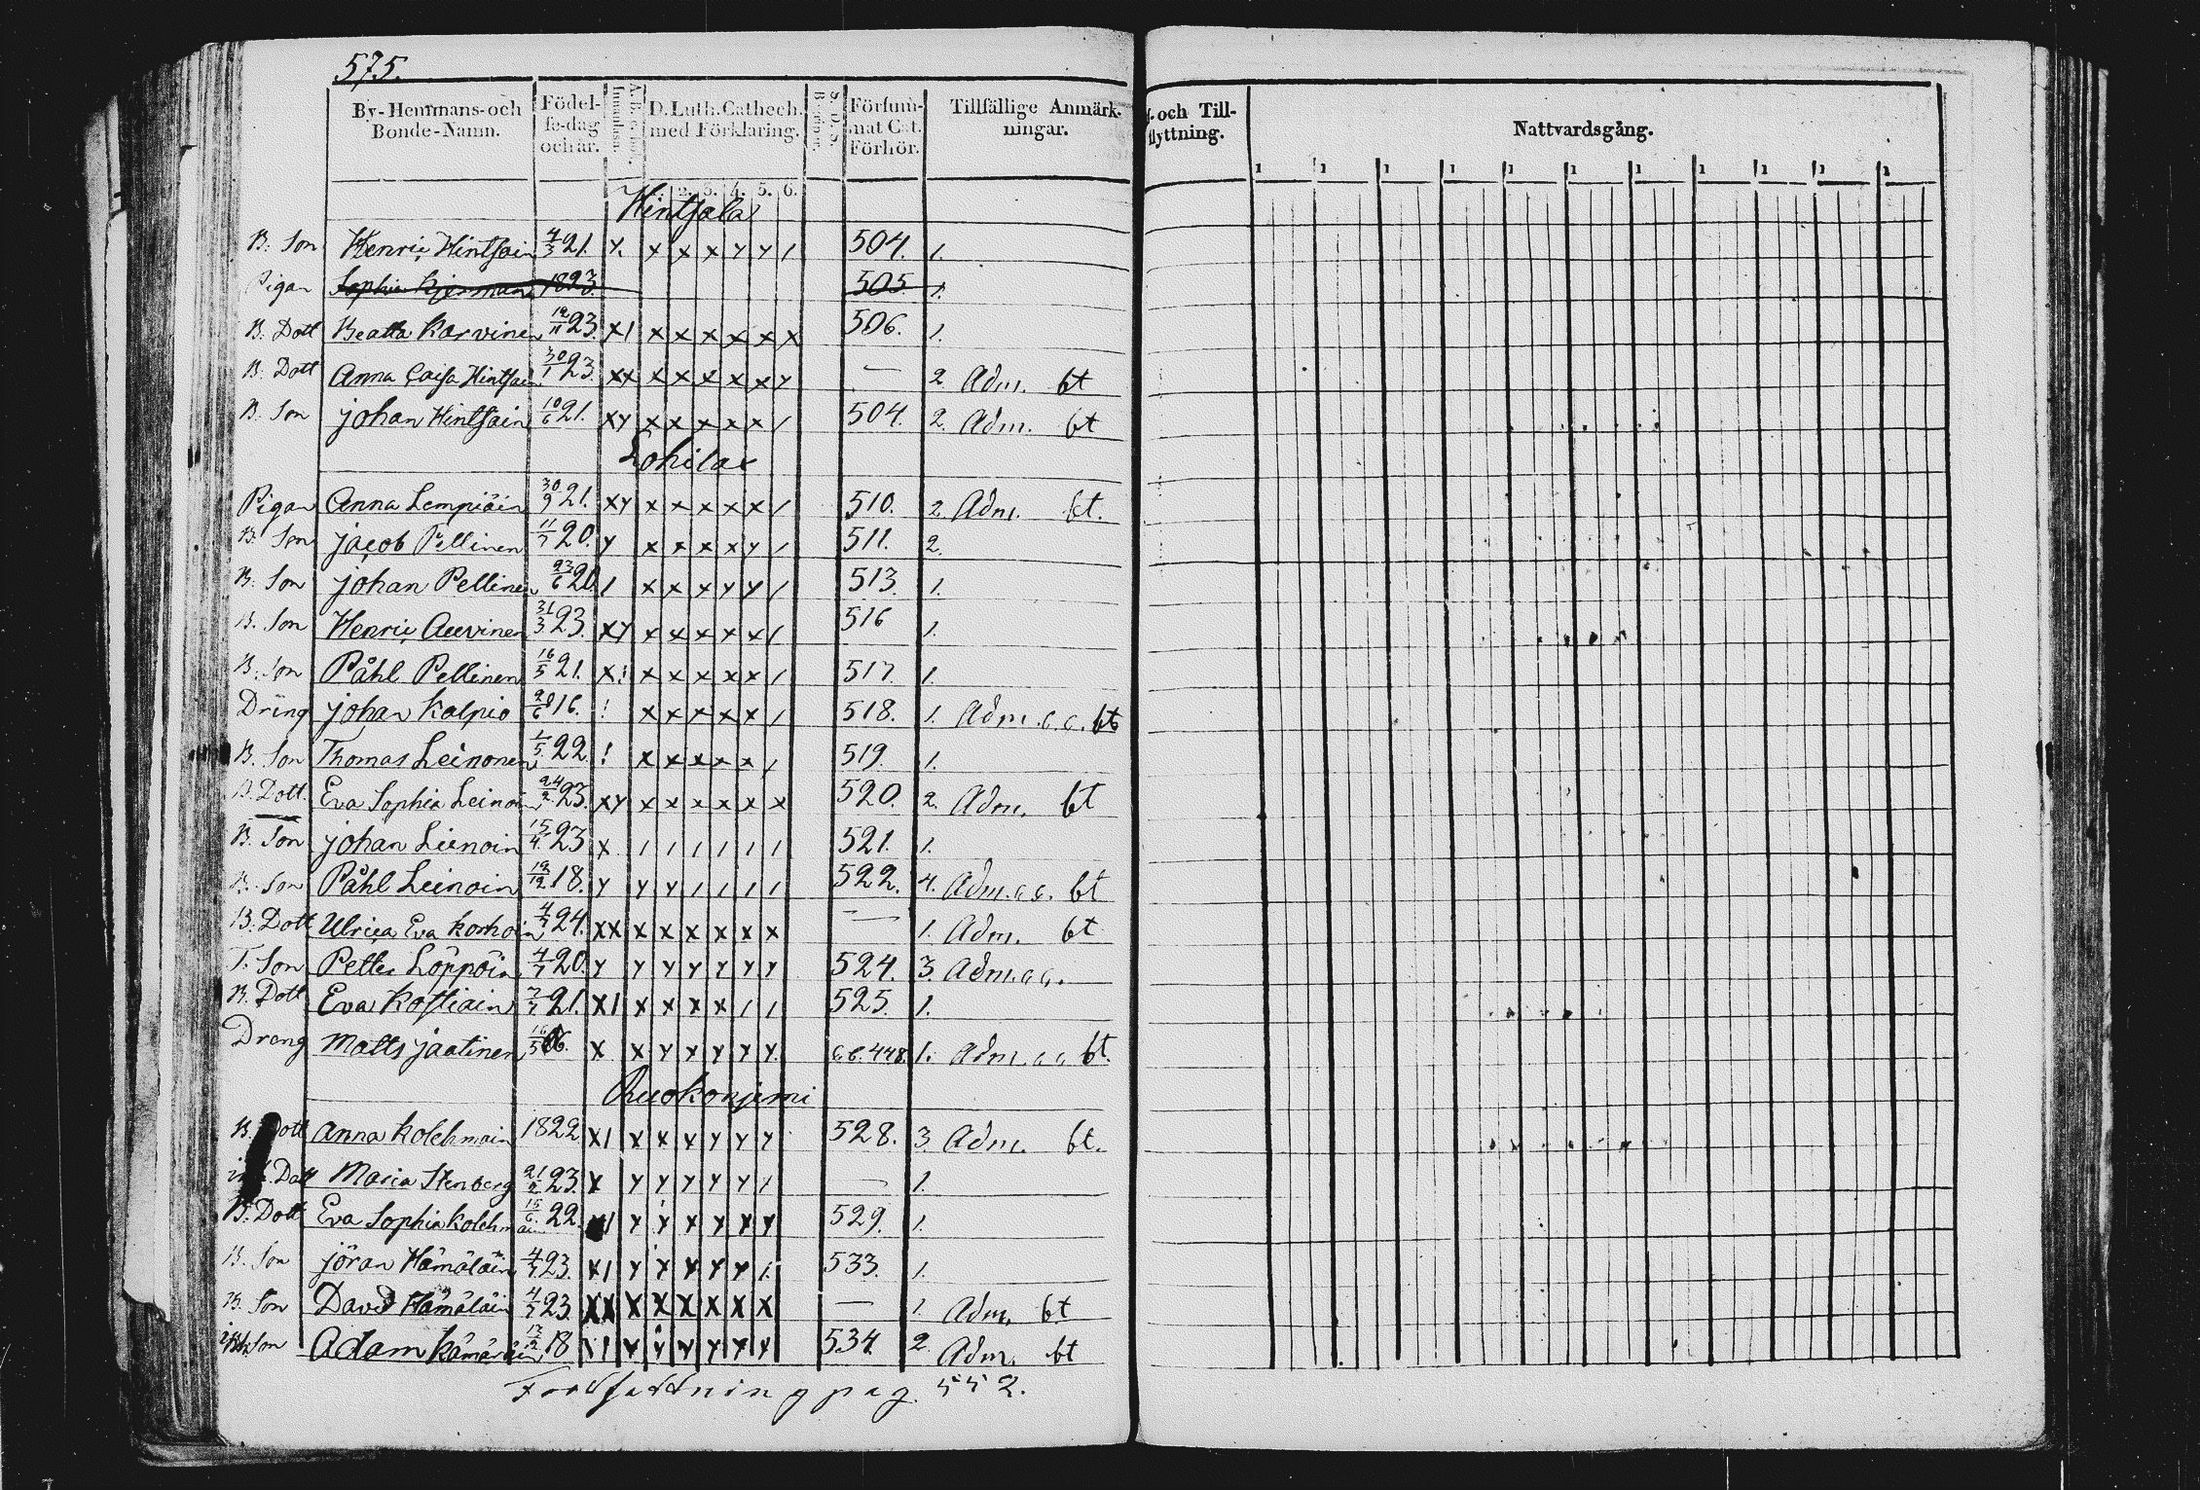 575.
By-Hemmans-och Bonde-Namn. Födel-se-dag och år. A.B.C.-bok. Innanläsn. D. Luth. Cathech. med Förklaring. S.D.S. Försum-mat Cat. Förhör. Tillfällige Anmärk-ningar. och Till-flyttning. Nattvardsgång.
2. 3. 4. 5. 6. 1 1 1 1 1 1 1 1 1 1 1
Hintsala
B. Son Henric Hintsain 4/3 21. x. x x x y y / 504. 1.
Pigan Sophia Kjerman 1823. 505 1.
B. Dott Beatta Karvinen 12/11 23. x1 x x x x x x 506. 1.
B. Dott Anna Caisa Hintsain 30/1 23. xx x x x x x y — 2 Adm. bt
B. Son johan Hintsain 10/6 21. xy x x x x x / 504. 2. Adm. bt
Lohilax
Pigan Anna Lempiäin 30/9 21. xy x x x x x / 510. 2. Adm. bt.
B. Son jacob Pellinen 11/7 20. y x x x x y / 511. 2.
B. Son johan Pellinen 23/6 20. / x x x y y / 513. 1.
B. Son Henric Auvinen 31/3 23. xy x x x x x / 516 1.
B. Son Påhl Pellinen 16/5 21. x! x x x x x / 517. 1.
Dräng johan Kolpio 20/6 16. ! x x x x x / 518. 1. Adm. c.c. bt
B. Son Thomas Leinonen 1/5 22. ! x x x x x / 519. 1.
B. Dott. Eva Sophia Leinoin 24/2 23. xy x x x x x x 520. 2. Adm. bt
B. Son johan Leinoin 15/4 23 x / / / / / / 521. 1.
B. Son Påhl Leinoin 19/12 18. y y y / / / / 522. 4. Adm. c.c. bt
B. Dott Ulrica Eva Korhoin 4/7 24. xx x x x x x x — 1. Adm. bt
T. Son Petter Löppöin 4/7 20. y y y y y y y 524. 3. Adm. c.c.
B. Dott Eva Kostiain 7/7 21. x1 x x x x / / 525. 1.
Dreng Matts jaatinen 16/5 06. x x y y y y y c.c. 448. 1. Adm. c.c. bt.
Ruokonjemi
B. Dott Anna Kolehmain 1822 x1 x x x y y y 528. 3. Adm. bt.
Dott Maria Stenberg 21/2 23. x y y y y y / — 1.
B. Dott Eva Sophia Kolehmain 15/6 22. 1 y y x y x y 529. 1.
B. Son jöran Hämäläin 4/7 23. x1 y y y y y 1. 533. 1.
B. Son David Hämäläin 4/7 23. xx x x x x x x — 1. Adm. bt
inh. Son Adam Kämäräin 17/12 18 x1 y y y y y y 534. 2. Adm. bt
Fordsäddning pag. 552.